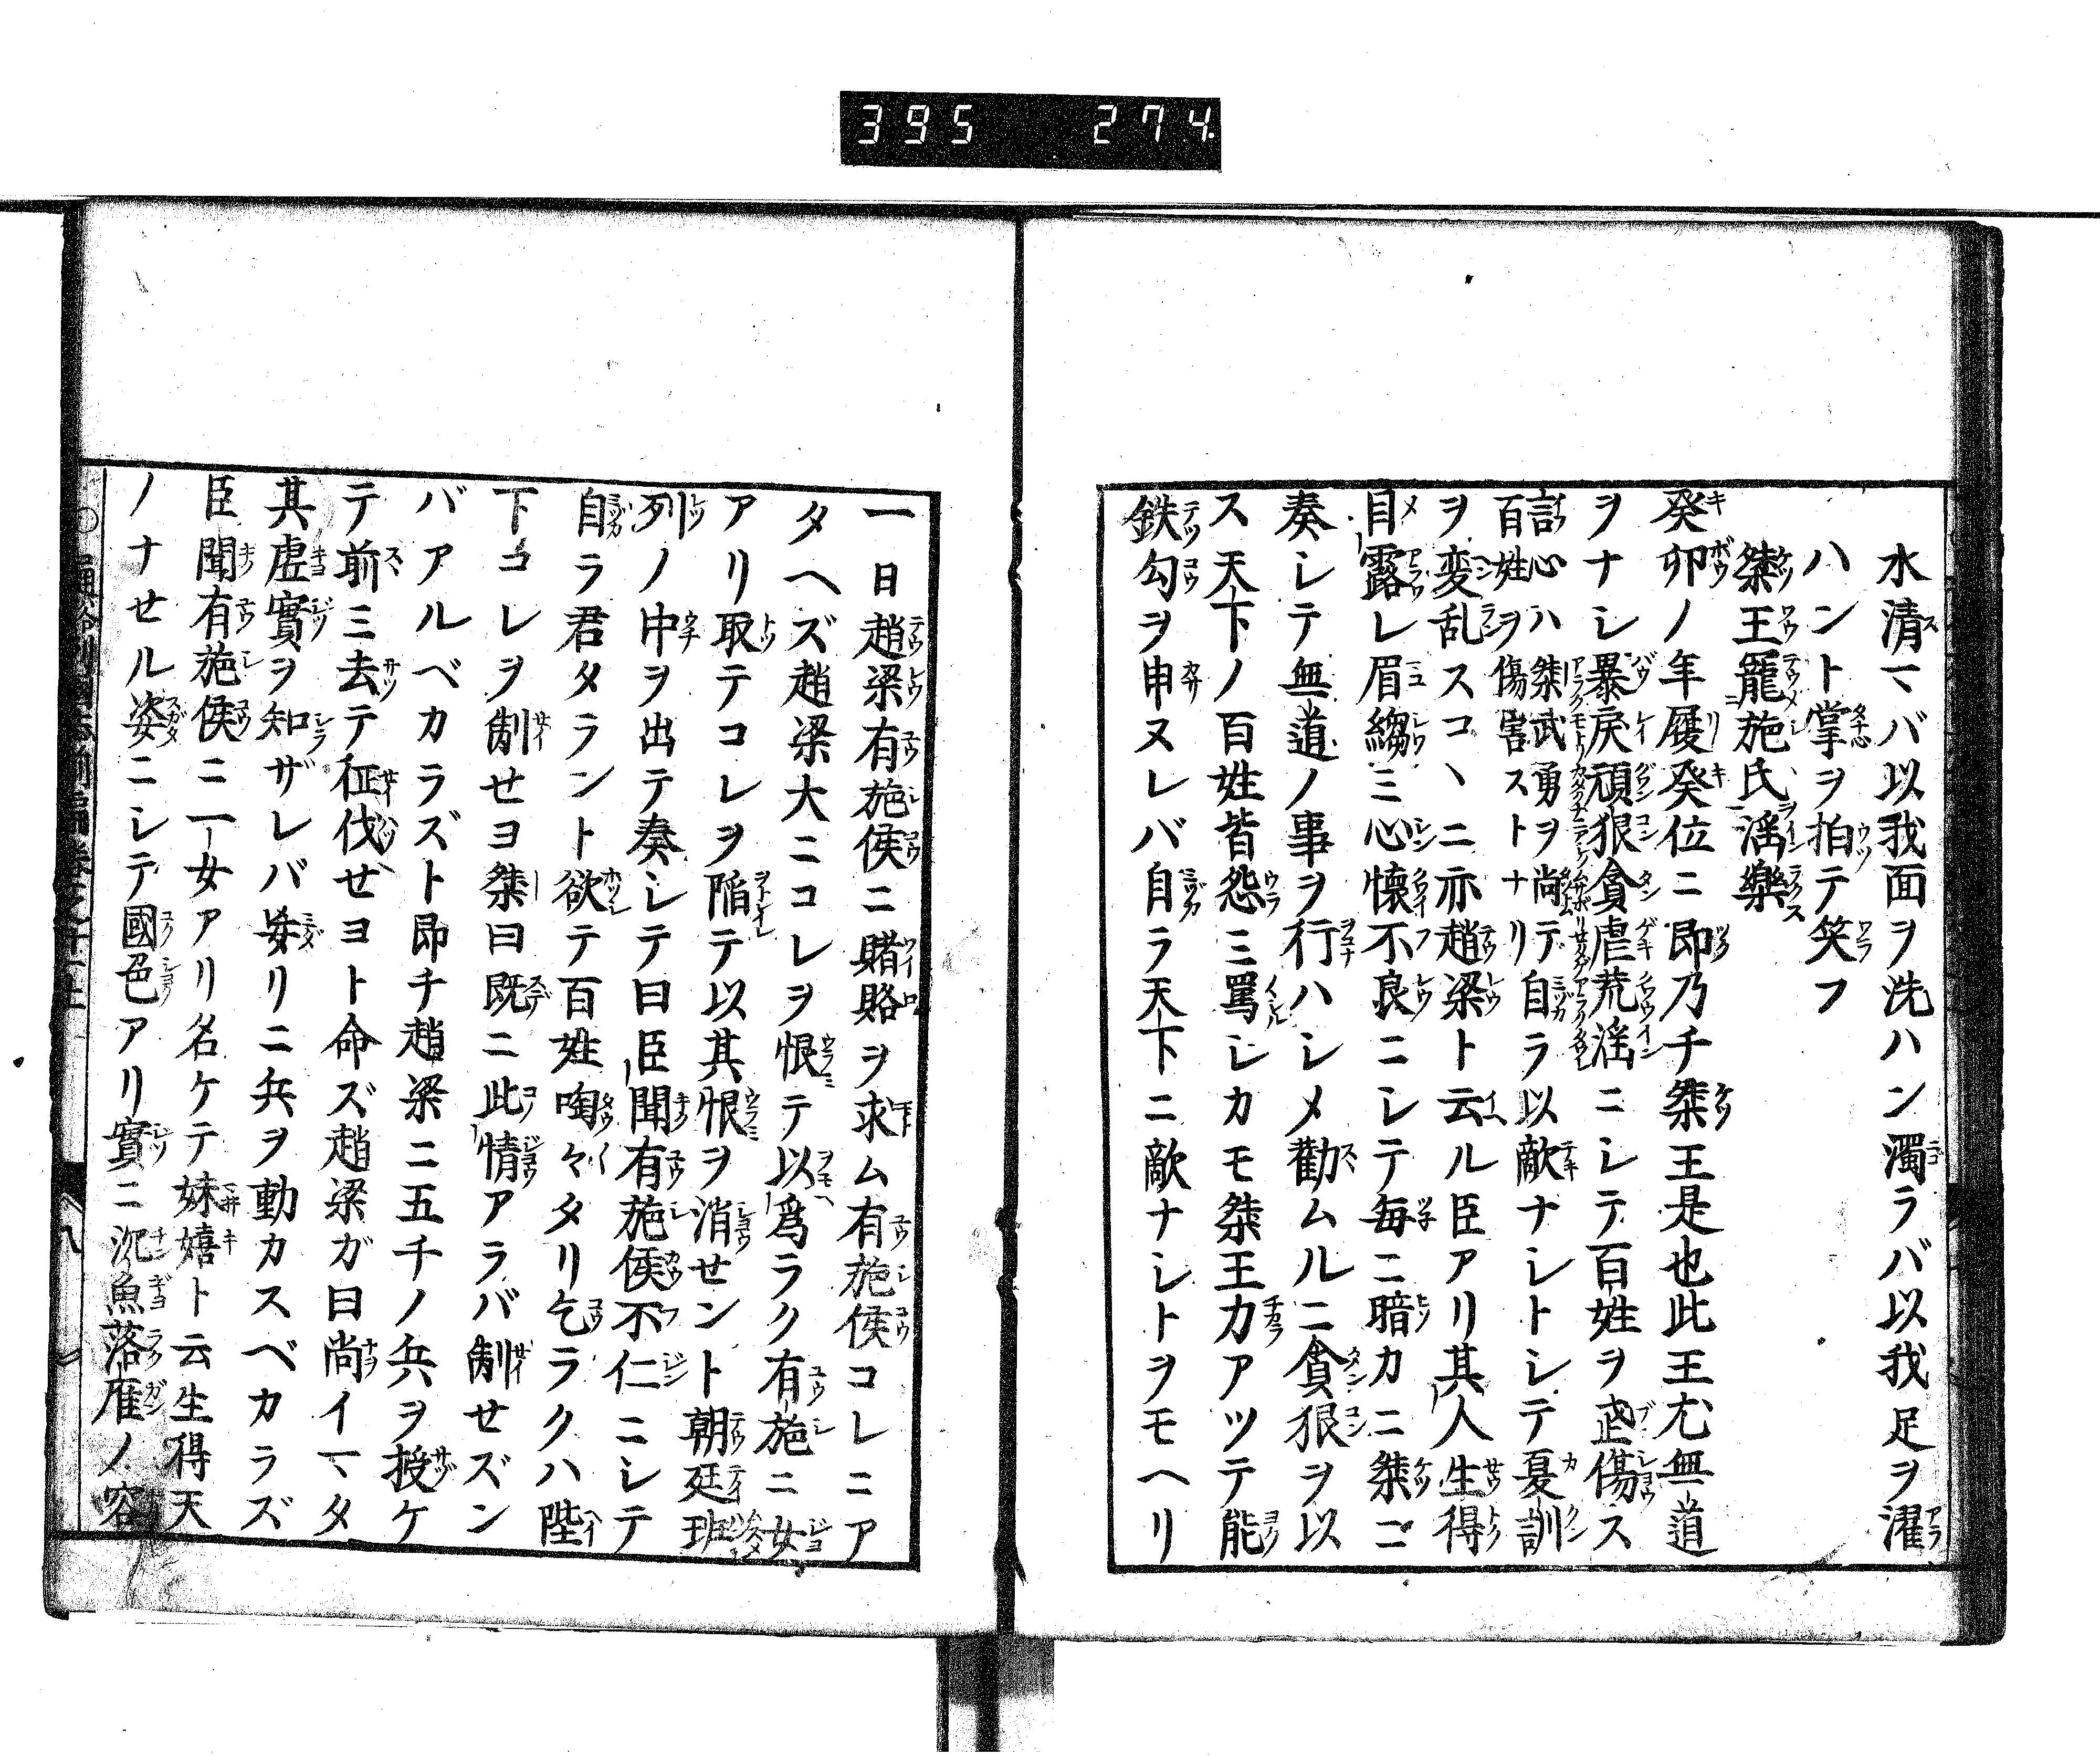 395 274
水清マバ以我面ヲ洗ハン濁ラバ以我足ヲ濯
ハント掌ヲ拍テ笑フ
桀王寵施氏滛樂
癸卯ノ年履癸位ニ即乃チ桀王是也此王尤無道
ヲナシ暴戻頑狠貪虐荒滛ニシテ百姓ヲ武傷ス
訁心ハ桀武勇ヲ尚テ自ラ以敵ナシトシテ夏訓
百姓ヲ傷害ストナリ
ヲ変乱スコヽニ亦趙梁ト云ル臣アリ其人生得
目露レ眉縐ミ心懐不良ニシテ毎ニ暗カニ桀ニ
奏シテ無道ノ事ヲ行ハシメ勸ムルニ貪狠ヲ以
ス天下ノ百姓皆怨ミ罵シカモ桀王力アツテ能
鉄勾ヲ申ヌレバ自ラ天下ニ敵ナシトヲモヘリ
一日趙梁有施侯ニ賂賂ヲ求ム有施侯コレニア
タヘズ趙梁大ニコレヲ恨テ以爲ラク有施ニ女
アリ取テコレヲ陥テ以其恨ヲ消せント朝廷班
列ノ中ヲ出テ奏シテ曰臣聞有施侯不仁ニシテ
自ラ君タラント欲テ百姓啕々タリ乞ラクハ陛
下コレヲ制せヨ桀曰既ニ此情アラバ制せズン
バアルベカラズト即チ趙梁ニ五千ノ兵ヲ授ケ
テ前ミ去テ征伐せヨト命ズ趙梁ガ曰尚イマタ
其虚實ヲ知ザレバ妄リニ兵ヲ動カスベカラズ
臣聞有施侯ニ一女アリ名ケテ妺嬉ト云生得天
ノナせル姿ニシテ國色アリ實ニ沉魚落雁ノ容
通俗列國志前編巻之一上 八